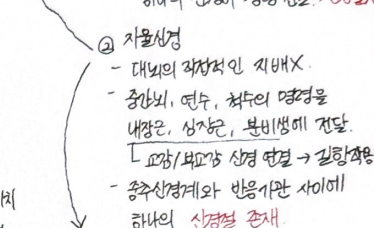 ② 자율신경
- 대뇌의 직접적인 지배X.
- 중간뇌, 연수, 척수의 명령을
내장근, 심장근, 분비샘에 전달.
└ 교감/부교감 신경 연결 → 길항작용
- 중추신경계와 반응기관 사이에
하나의 신경절 존재.